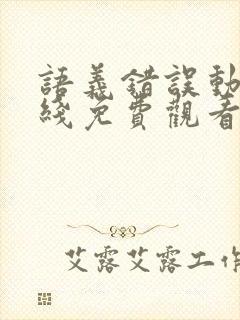 語義錯誤動
綫免費觀看
艾露艾露工作